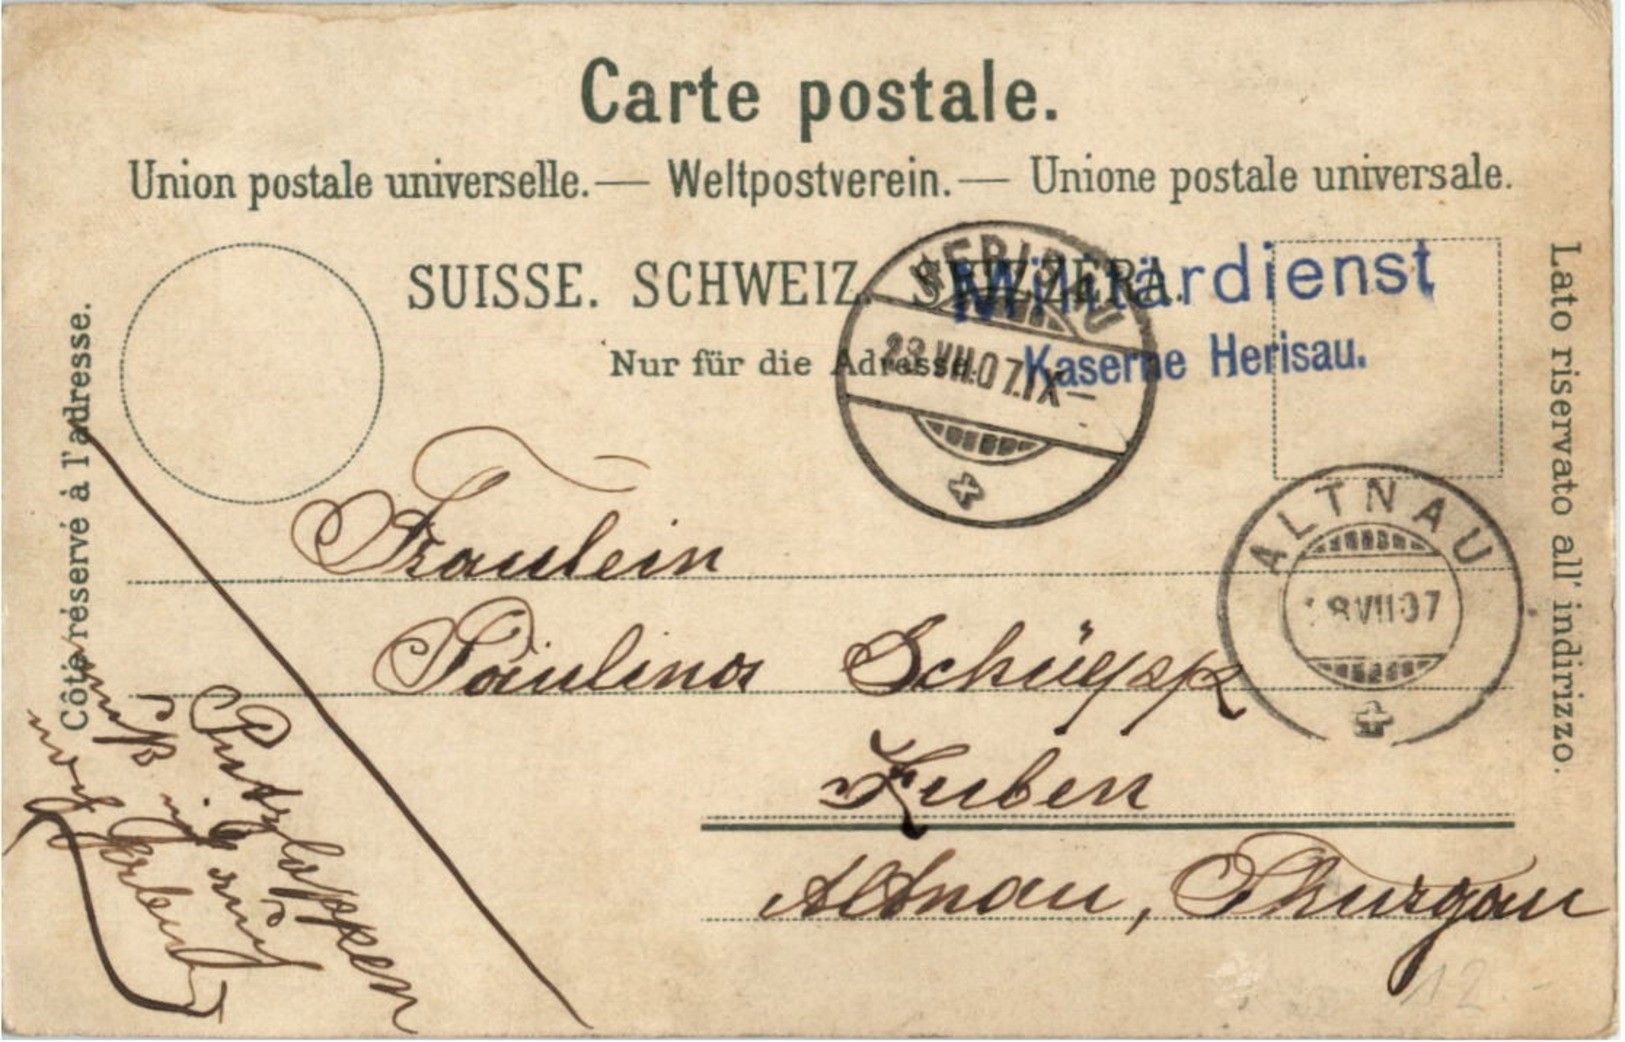 Carte postale.
Union postale universelle. — Weltpostverein. — Unione postale universale.
SUISSE. SCHWEIZ. SVIZZERA.
Nur für die Adresse.
Militärdienst
Kaserne Herisau.
HERISAU
23.VII.07.IX—
ALTNAU
8 VII 07
Côté réservé à l'adresse.
Lato riservato all' indirizzo.
Fraulein
Paulina Schüepp
Zuben
Altnau, Thurgau
Putzlappen
12.-